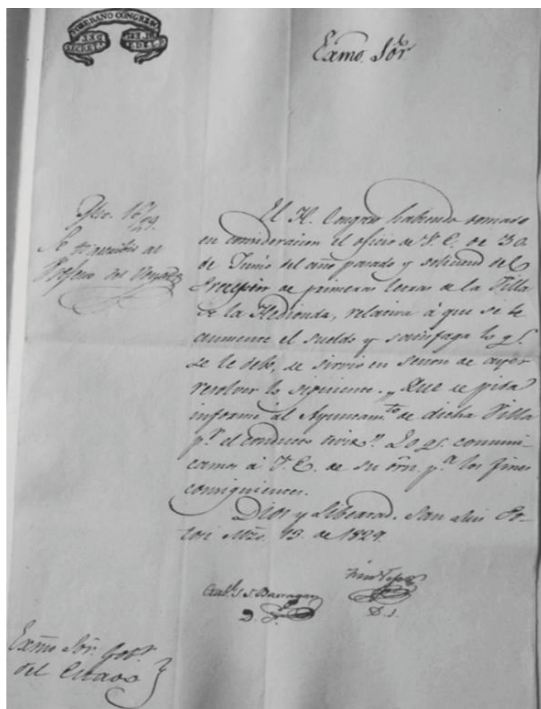 SOBERANO CONGRESO
Exmo. Sõr.
Mzo. 16/829.
El H. Congreso habiendo tomado
en consideracion el oficio de V. E. de 30
de Junio del año pasado y solicitud del
Preceptor de primeras letras de la Villa
de la Hedionda, relativa á que se le
aumente el sueldo y satisfaga lo q.
se le debe, se sirvio en sesion de ayer
resolver lo siguiente. „ Que se pida
informe al Ayuntamto. de dicha Villa
pr. el conducto Lo q. comuni-
camos á V. E. de su órn. pa. los fines
consiguientes.
Dios y Libertad. San Luis Po-
tosi Mzo. 13. de 1829.
Barragan
D. S.
D. S.
Exmo Sõr. Gobr.
del Estado